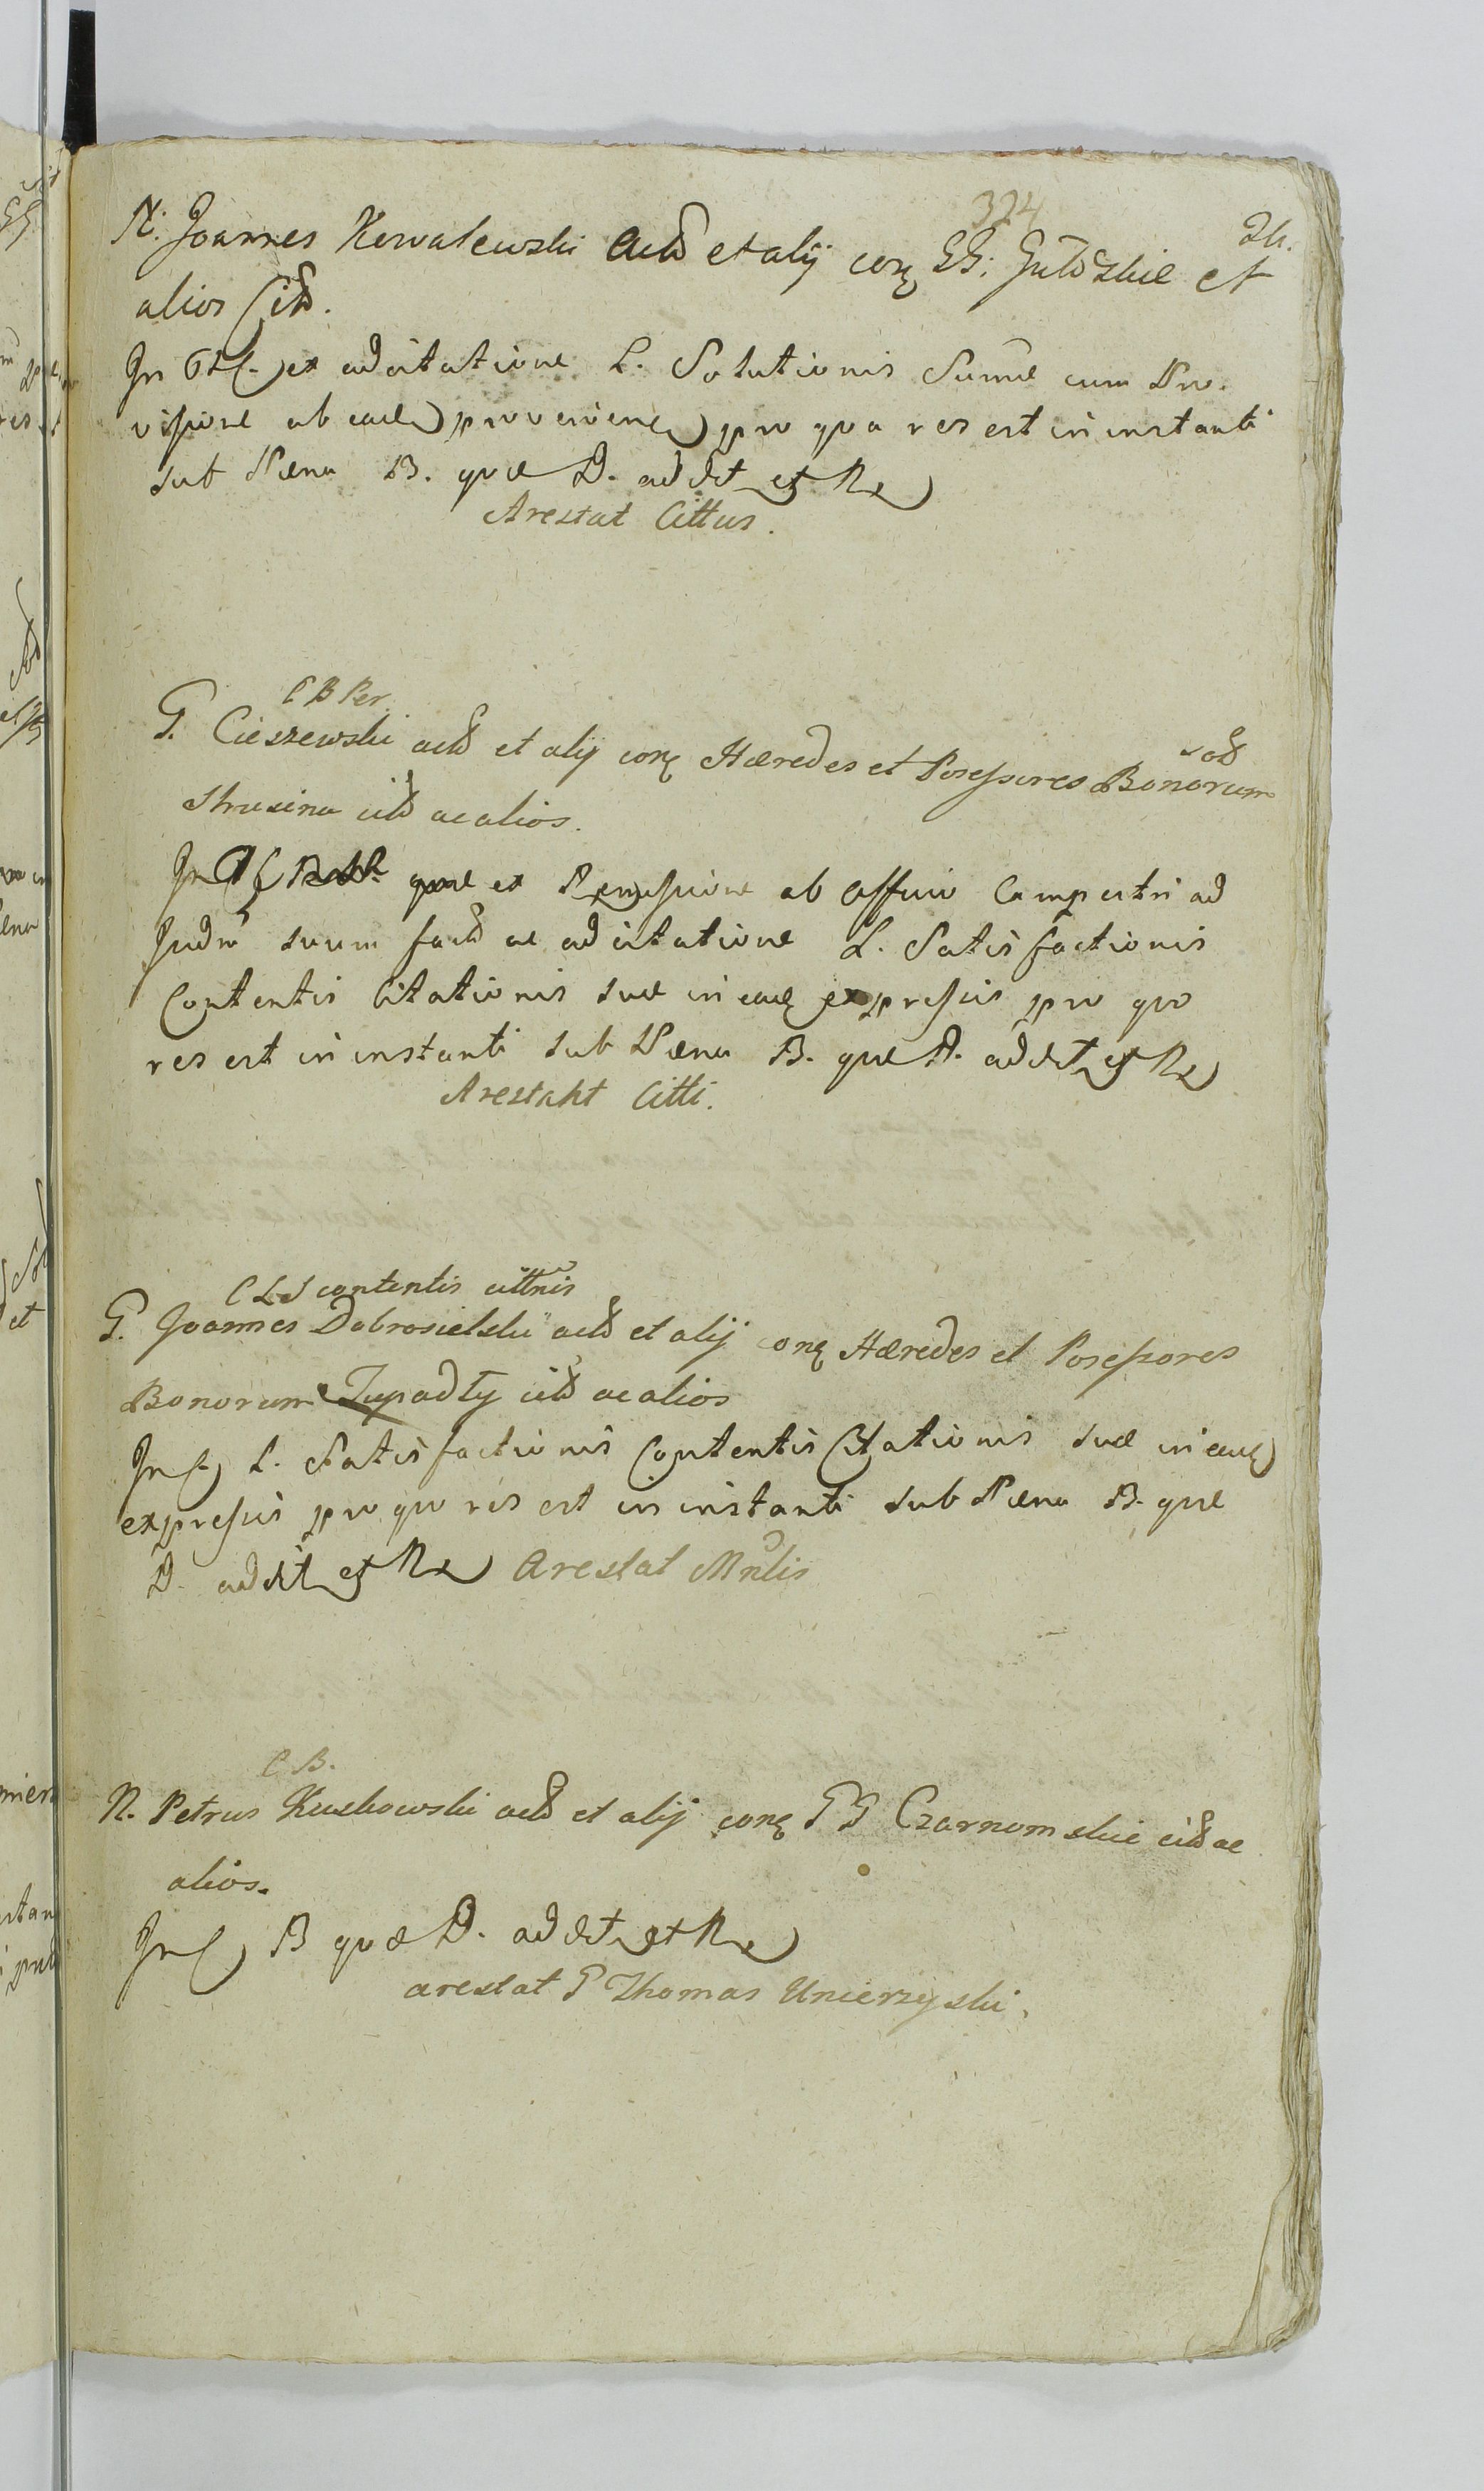 324
N. Joannes Kowalewski Actd et alij conq GG. et
alios Citd.
In ex adcitatione L. Solutionis Sumae cum Pro-
visione ab eade) provenien) pro qva res est in instanti
sub Paena B. qvae D. addit et Re)
Arestat Cittus.
C B Per.
G. Cieszewski actd et alij conq Haeredes et Possessores Bonorum
citd ac alios.
In ex Remissione ab Officio Campestri ad
Judm suum factd ac adcitatione L. Satisfactionis
Contentis Citationis suae in eadq expressis pro qvo
res est in instanti sub Paena B. qvae D. addit et Re)
Arestant Citti.
C L S contentis cittnis
G. Joannes Dobrosielski actd et alij conq Haeredes et Possessores
Bonorum Zupadty citd ac alios
In L. Satisfactionis Contentis Citationis suae in eadq)
expressis pro qvo res est in instanti sub Paena B. qvae
D. addit et Re) Arestat Mnlis
C B.
N. Petrus Kuskowski actd et alij conq GG Czarnomskie citd ac
alios.
In B qvae D. addit et Re)
arestat G Thomas Unierzyski.